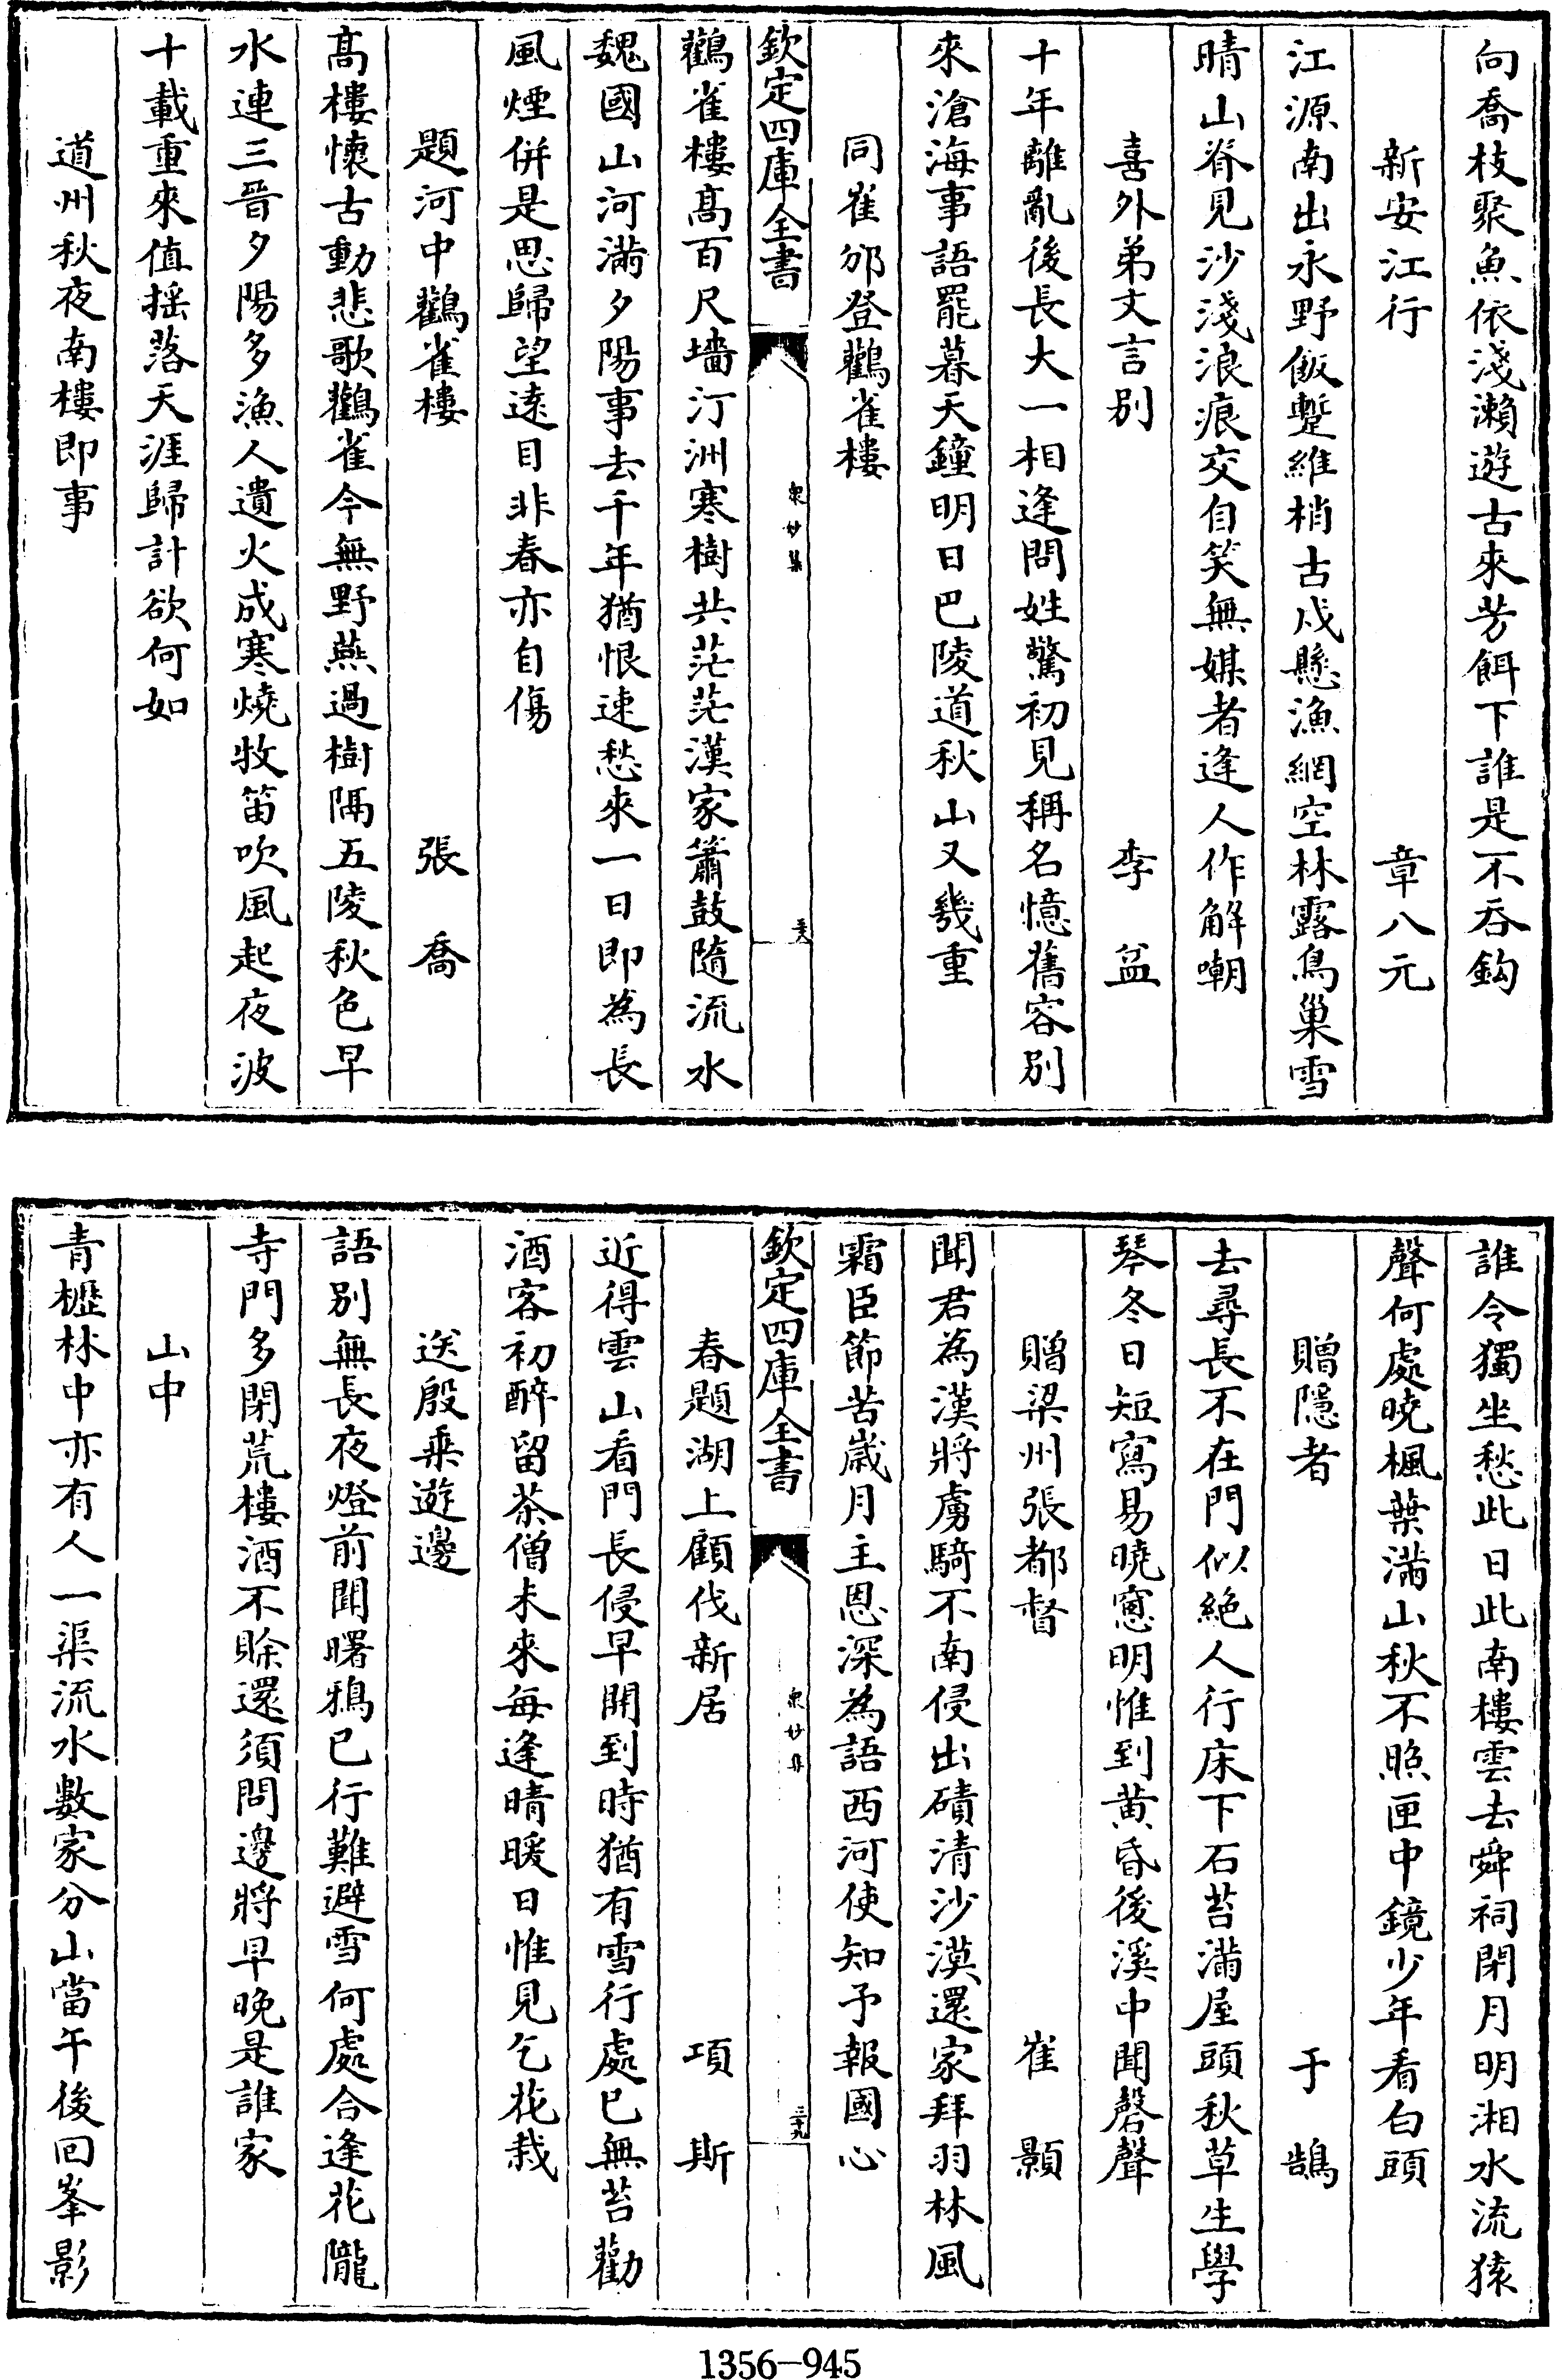 向喬枝聚魚依淺瀨遊古來芳餌下誰是不吞鈎
新安江行 章八元
江源南出永野飯蹔維梢古戍懸漁網空林露鳥巢雪
晴山脊見沙淺浪痕交自笑無媒者逢人作解嘲
喜外弟文言別 李益
十年離亂後長大一相逢問姓驚初見稱名憶舊容別
來滄海事語罷暮天鐘明日巴陵道秋山又幾重
同崔邠登鸛雀樓
欽定四庫全書 衆妙集 三十八
鸛雀樓髙百尺墻汀洲寒樹共茫茫漢家簫鼓隨流水
魏國山河滿夕陽事去千年猶恨速愁來一日即為長
風煙併是思歸望逺目非春亦自傷
題河中鸛雀樓 張喬
髙樓懷古動悲歌鸛雀今無野燕過樹隔五陵秋色早
水連三晉夕陽多漁人遺火成寒燒牧笛吹風起夜波
十載重來值搖落天涯歸計欲何如
道州秋夜南樓即事
誰令獨坐愁此日此南樓雲去舜祠閉月明湘水流猿
聲何處曉楓葉滿山秋不照匣中鏡少年看白頭
贈隱者 于鵠
去尋長不在門似絶人行床下石苔滿屋頭秋草生學
琴冬日短寫易曉窓明惟到黄昏後溪中聞磬聲
贈梁州張都督 崔顥
聞君為漢將虜騎不南侵出磧清沙漠還家拜羽林風
霜臣節苦歲月主恩深為語西河使知予報國心
欽定四庫全書 衆妙集 三十九
春題湖上顧伐新居 項斯
近得雲山看門長侵早開到時猶有雪行處已無苔勸
酒客初醉留茶僧未來每逢晴暖日惟見乞花栽
送殷乗遊邊
語別無長夜燈前聞曙鴉已行難避雪何處合逢花隴
寺門多閉荒樓酒不賒還須問邊將早晚是誰家
山中
青櫪林中亦有人一渠流水數家分山當午後回峯影
1356-945